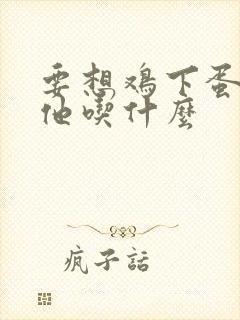 要想鸡下蛋
他喫什麼
疯子話